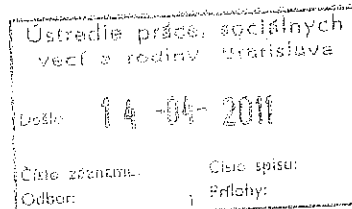 Ústredie práce, sociálnych
vecí a rodiny Bratislava
Došlo: 14 -04- 2011
Číslo záznamu: Číslo spisu:
Odbor: Prílohy: